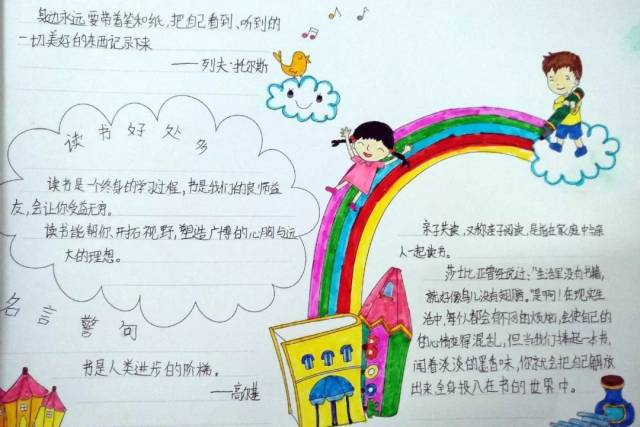 身边永远要带着笔和纸,把自己看到、听到的
一切美好的东西记录下来
——列夫·托尔斯
读书好处多
读书是一个终身的学习过程,书是我们的良师益
友,会让你受益无穷。
读书能帮你开拓视野,塑造广博的心胸与远
大的理想。
名言警句
书是人类进步的阶梯。
——高尔基
BOOK
亲子共读,又称亲子阅读,是指在家庭中与亲
人一起读书。
莎士比亚曾经说过:“生活里没有书籍,
就好像鸟儿没有翅膀。”是啊!在现实生
活中,每个人都会有不同的烦恼,会使自己的
心情变得混乱,但当我们捧起一本书,
闻着淡淡的墨香味,你就会把自己解放
出来全身投入在书的世界中。